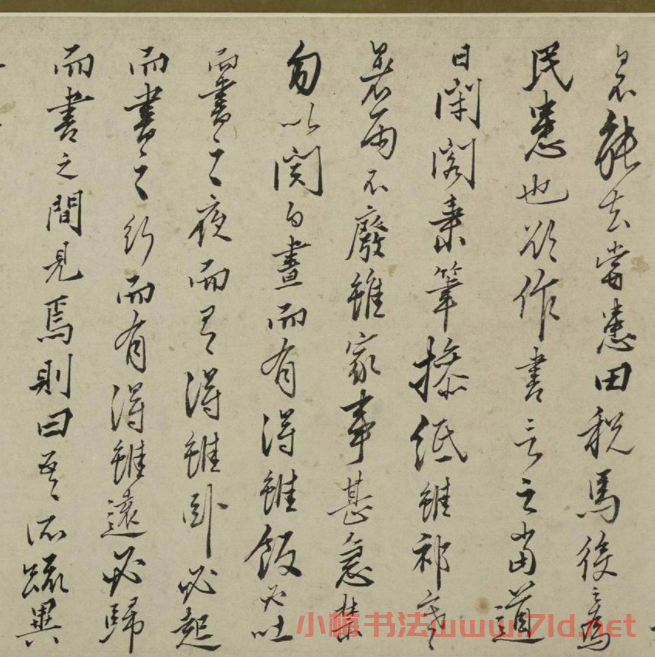 能去嘗患田税馬役之為
民患也欲作書言之當道
日閉閣秉筆操紙雖祁寒
暑雨不廢雖家事甚急禁
勿以関白晝而有得雖飯必吐
而書之夜而有得雖卧必起
而書之行而有得雖遠必歸
而書之間見焉則曰吾所疏異
书法www.7ld.net